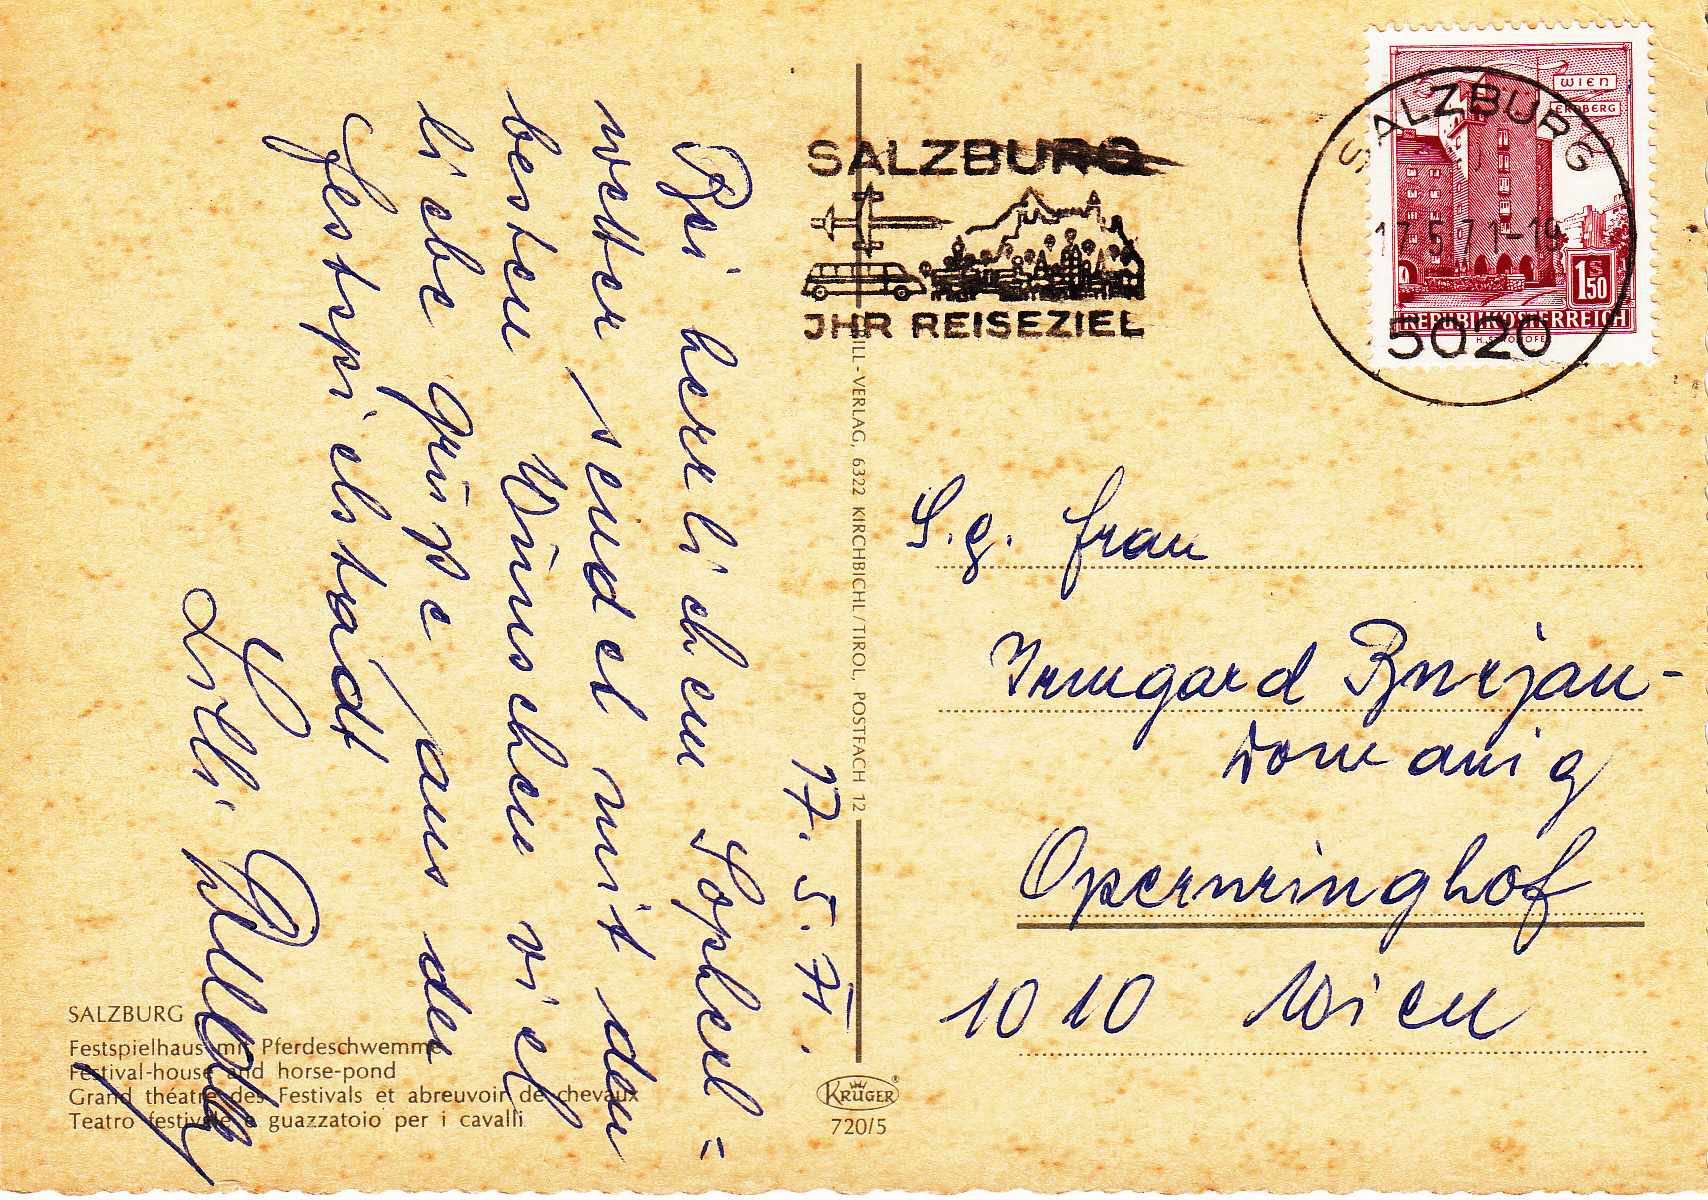 SALZBURG
JHR REISEZIEL
SALZBURG
17.5.71-19
5020
WIEN
ERDBERG
1 S 50
REPUBLIK ÖSTERREICH
H. STROHOFER
17. 5. 71.
Bei herrlichem Sopherl=
wetter sendet mit den
besten Wünschen viel
liebe Grüße aus der
Festspielstadt
Lilli
S.g. Frau
Irmgard Burjan-
Domanig
Opernringhof
1010 Wien
ILL - VERLAG, 6322 KIRCHBICHL/TIROL, POSTFACH 12
SALZBURG
Festspielhaus mit Pferdeschwemme
Festival-house and horse-pond
Grand théatre des Festivals et abreuvoir de chevaux
Teatro festivale e guazzatoio per i cavalli
KRÜGER®
720/5